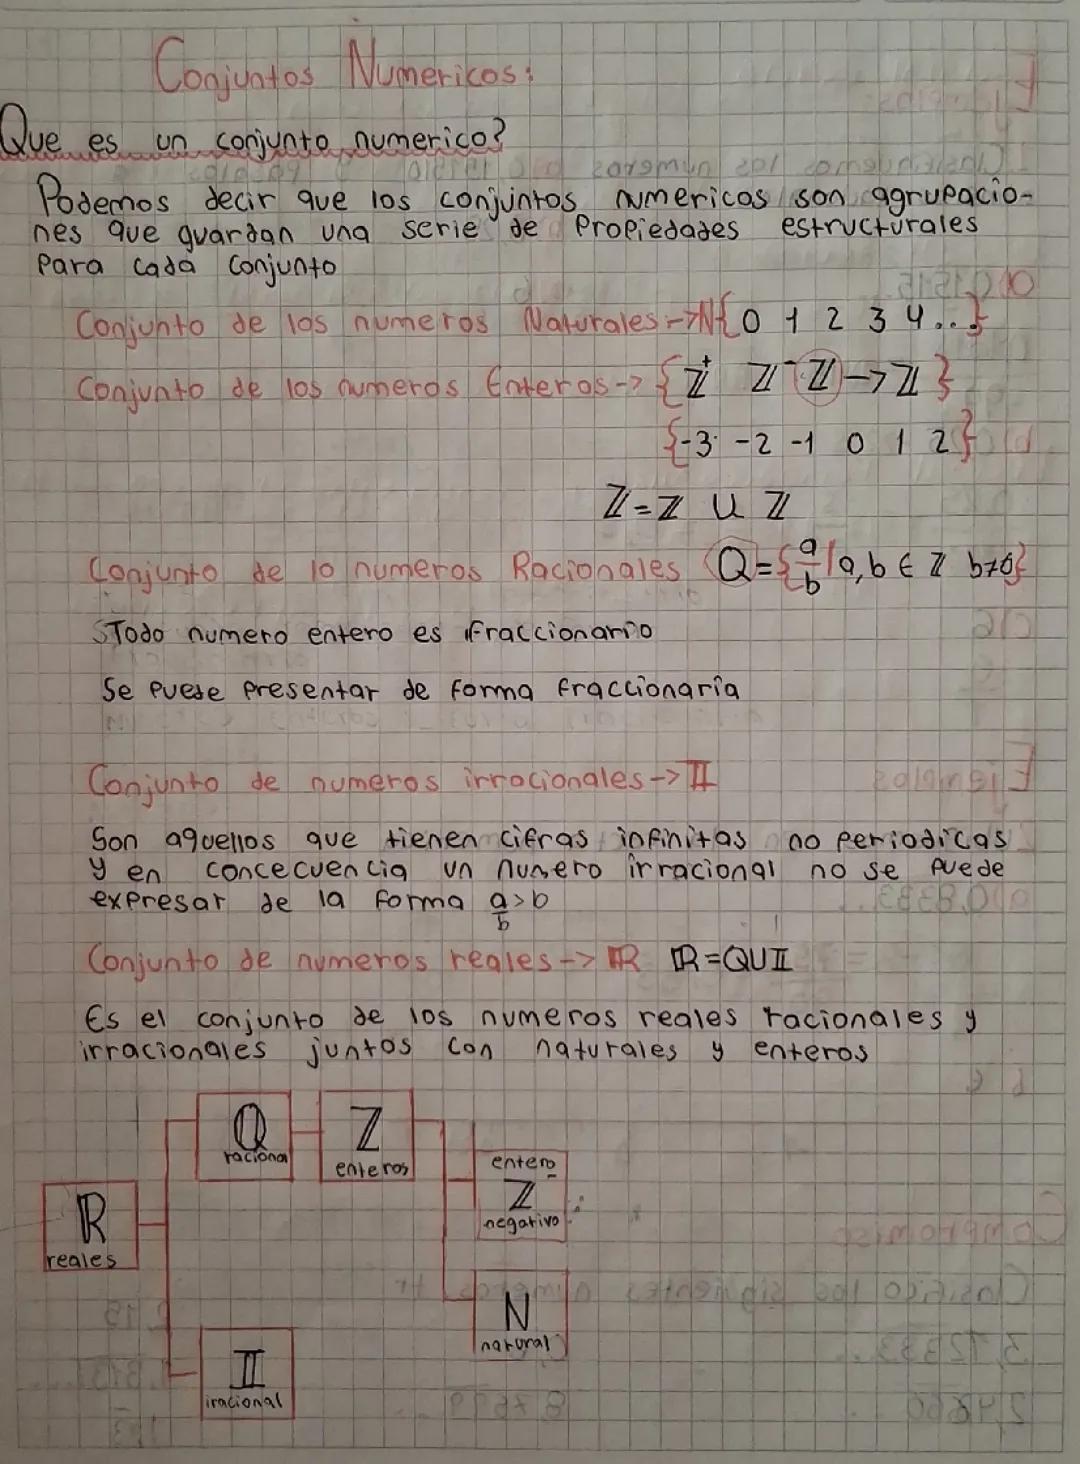 Conjuntos Numericos:
Que es un conjunto numerico?
Podemos decir que los conjuntos numericos son agrupacio-
nes que guardan una serie de Propiedades estructurales
Para cada conjunto
Conjunto de los numeros Naturales→N{0 1 2 3 4...}
Conjunto de los numeros Enteros→{ℤ⁺ ℤ⁻ ℤ→ℤ}
{-3 -2 -1 0 1 2}
ℤ=ℤ U ℤ
Conjunto de lo numeros Racionales Q={a/b / a,b ∈ ℤ b≠0}
Todo numero entero es Fraccionario
Se puede Presentar de Forma Fraccionaria
Conjunto de numeros irracionales→𝕀
Son aquellos que tienen cifras infinitas no Periodicas
y en concecuencia un numero irracional no se puede
expresar de la Forma a/b>b
Conjunto de numeros reales→ℝ ℝ=QU𝕀
Es el conjunto de los numeros reales racionales y
irracionales juntos con naturales y enteros
Q
raciona
Z
enteros
entero
Z⁻
negativo
R
reales
N
natural
𝕀
iracional